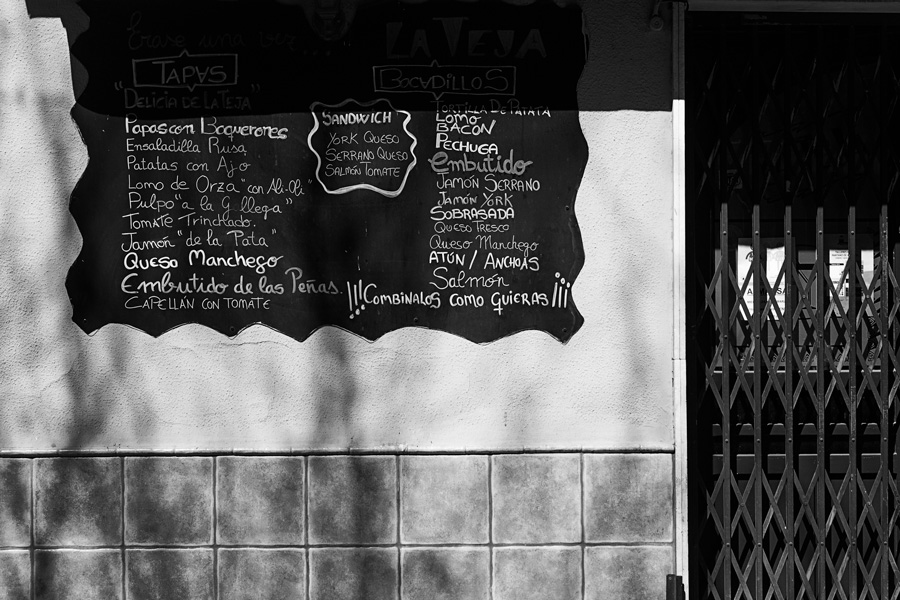 Erase una vez...
LA TEJA
TAPAS
"DELICIA DE LA TEJA"
Papas con Boquerones
Ensaladilla Rusa
Patatas con Ajo
Lomo de Orza "con Ali-Oli"
Pulpo "a la G llega"
Tomate Trinchado.
Jamón "de la Pata"
Queso Manchego
Embutido de las Peñas.
CAPELLÁN CON TOMATE
SANDWICH
YORK QUESO
SERRANO QUESO
SALMÓN TOMATE
BOCADILLOS
TORTILLA DE PATATA
LOMO
BACÓN
PECHUGA
Embutido
JAMÓN SERRANO
JAMÓN YORK
SOBRASADA
QUESO FRESCO
Queso Manchego
ATÚN / ANCHOAS
Salmón
!!!COMBINALOS COMO QUIERAS¡¡¡